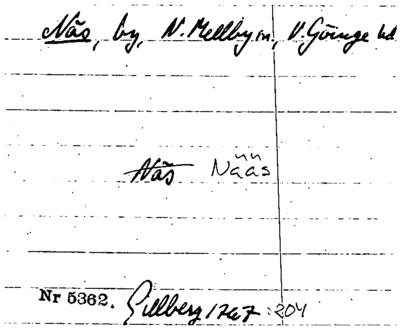 Näs, by, N. Mellby sn, V. Göinge hd
Näs Nääs
Nr 5362. Gillberg 1767:204